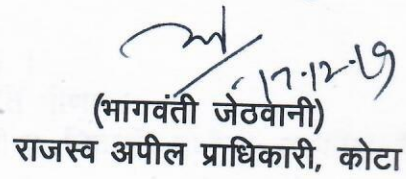 17.12.19
(भागवंती जेठवानी)
राजस्व अपील प्राधिकारी, कोटा